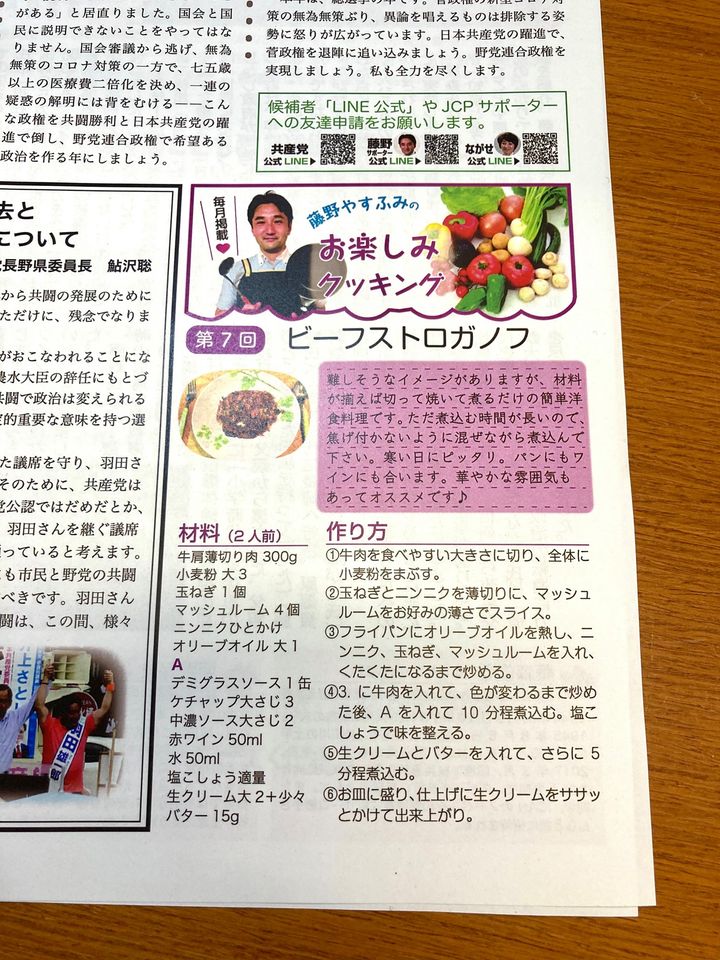 がある」と居直りました。国会と国
民に説明できないことをやってはな
りません。国会審議から逃げ、無為
無策のコロナ対策の一方で、七五歳
以上の医療費二倍化を決め、一連の
疑惑の解明には背をむける――こん
な政権を共闘勝利と日本共産党の躍
進で倒し、野党連合政権で希望ある
政治を作る年にしましょう。
策の無為無策ぶり、異論を唱えるものは排除する姿
勢に怒りが広がっています。日本共産党の躍進で、
菅政権を退陣に追い込みましょう。野党連合政権を
実現しましょう。私も全力を尽くします。
候補者「LINE公式」やJCPサポーター
への友達申請をお願いします。
共産党
公式LINE▶
藤野
サポーター
公式LINE▶
ながせ
公式LINE▶
去と
について
長野県委員長 鮎沢聡
から共闘の発展のために
ただけに、残念でなりま
がおこなわれることにな
農水大臣の辞任にもとづ
共闘で政治は変えられる
定的重要な意味を持つ選
た議席を守り、羽田さん
そのために、共産党は
党公認ではだめだとか、
羽田さんを継ぐ議席
っていると考えます。
も市民と野党の共闘
べきです。羽田さん
闘は、この間、様々
毎月掲載♥
藤野やすふみの
お楽しみ
クッキング
第7回 ビーフストロガノフ
難しそうなイメージがありますが、材料
が揃えば切って焼いて煮るだけの簡単洋
食料理です。ただ煮込む時間が長いので、
焦げ付かないように混ぜながら煮込んで
下さい。寒い日にピッタリ。パンにもワ
インにも合います。華やかな雰囲気も
あってオススメです♪
材料(2人前)
牛肩薄切り肉 300g
小麦粉 大3
玉ねぎ 1個
マッシュルーム 4個
ニンニクひとかけ
オリーブオイル 大1
A
デミグラスソース1缶
ケチャップ大さじ3
中濃ソース大さじ2
赤ワイン 50ml
水 50ml
塩こしょう適量
生クリーム大2+少々
バター 15g
作り方
①牛肉を食べやすい大きさに切り、全体に
小麦粉をまぶす。
②玉ねぎとニンニクを薄切りに、マッシュ
ルームをお好みの薄さでスライス。
③フライパンにオリーブオイルを熱し、ニ
ンニク、玉ねぎ、マッシュルームを入れ、
くたくたになるまで炒める。
④3. に牛肉を入れて、色が変わるまで炒め
た後、A を入れて 10 分程煮込む。塩こ
しょうで味を整える。
⑤生クリームとバターを入れて、さらに 5
分程煮込む。
⑥お皿に盛り、仕上げに生クリームをササッ
とかけて出来上がり。